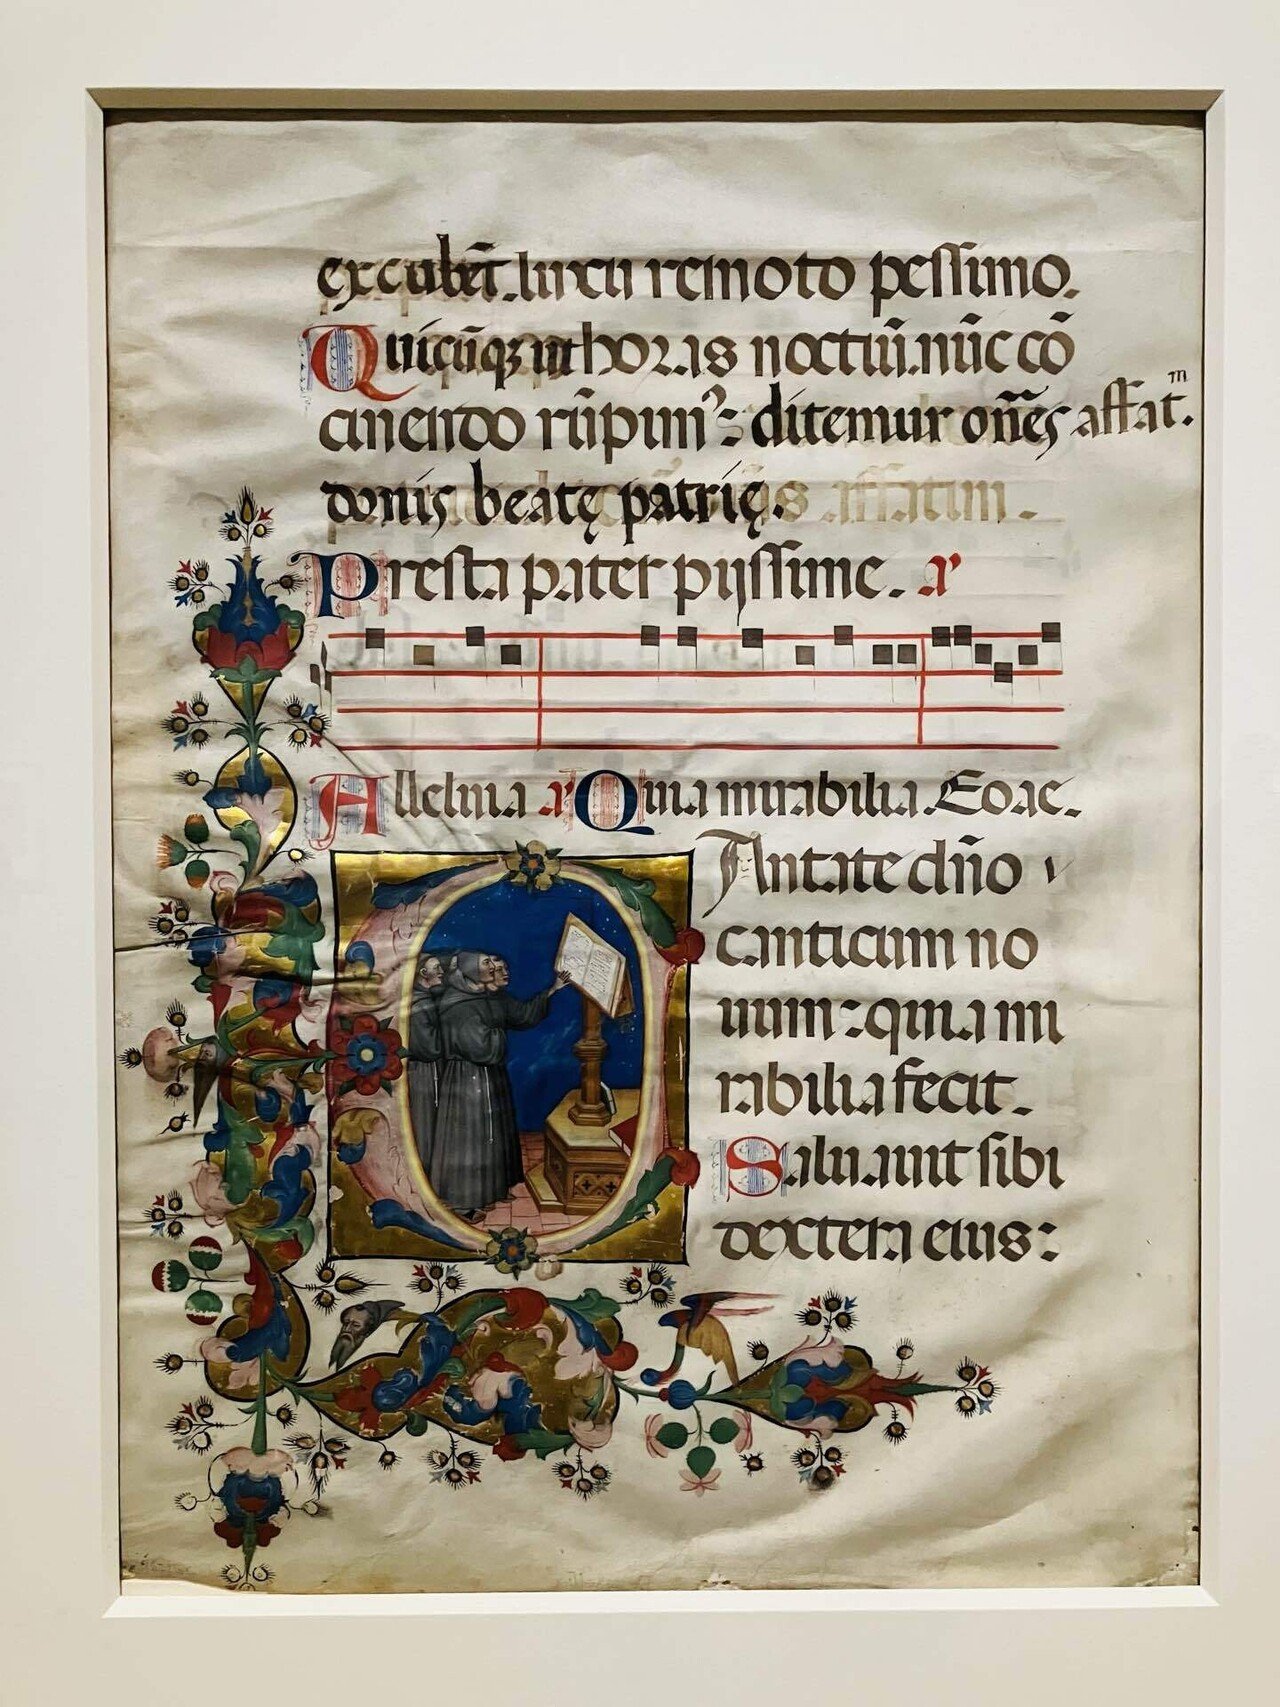 excubēt. lucu remoto pessimo.
Quicūqꝫ ut horas noctiū. nūc cō
cinendo rūpim⁹: ditemur oñes affatᵐ.
donis beatę patrię.
Presta pater pijssime.
Alleluia Quia mirabilia. Eoae.
Antate dño
canticum no
uum: quia mi
rabilia fecit.
Saluauit sibi
dextera eius: